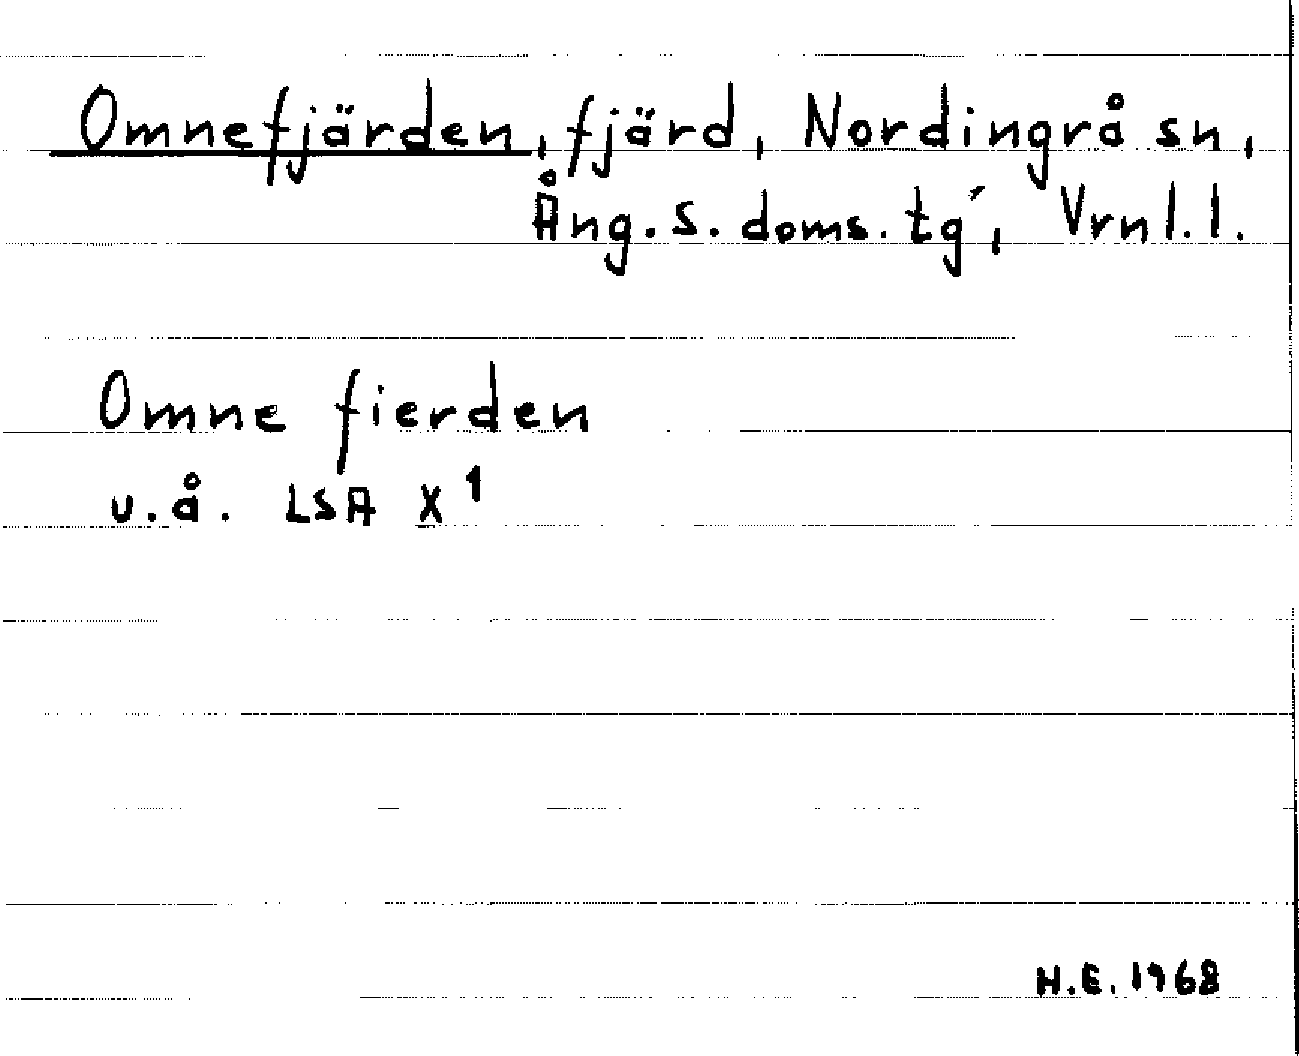 Omnefjärden, fjärd, Nordingrå sn,
Ång. s. doms. tg, Vrnl. l.
Omne fierden
u.å. LSA X¹
H.E. 1968